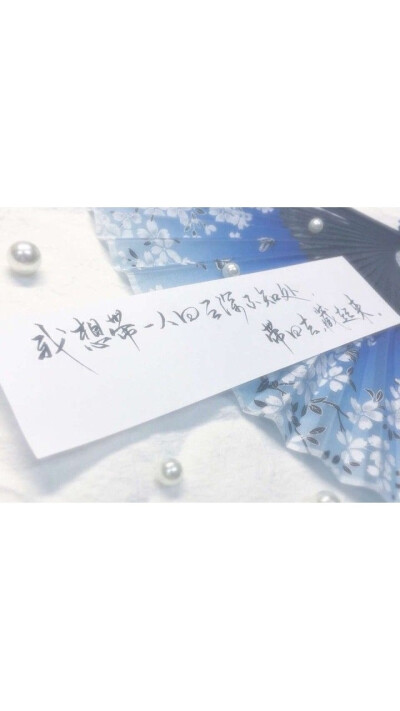 我想带一人回云深不知处.
带回去藏起来.